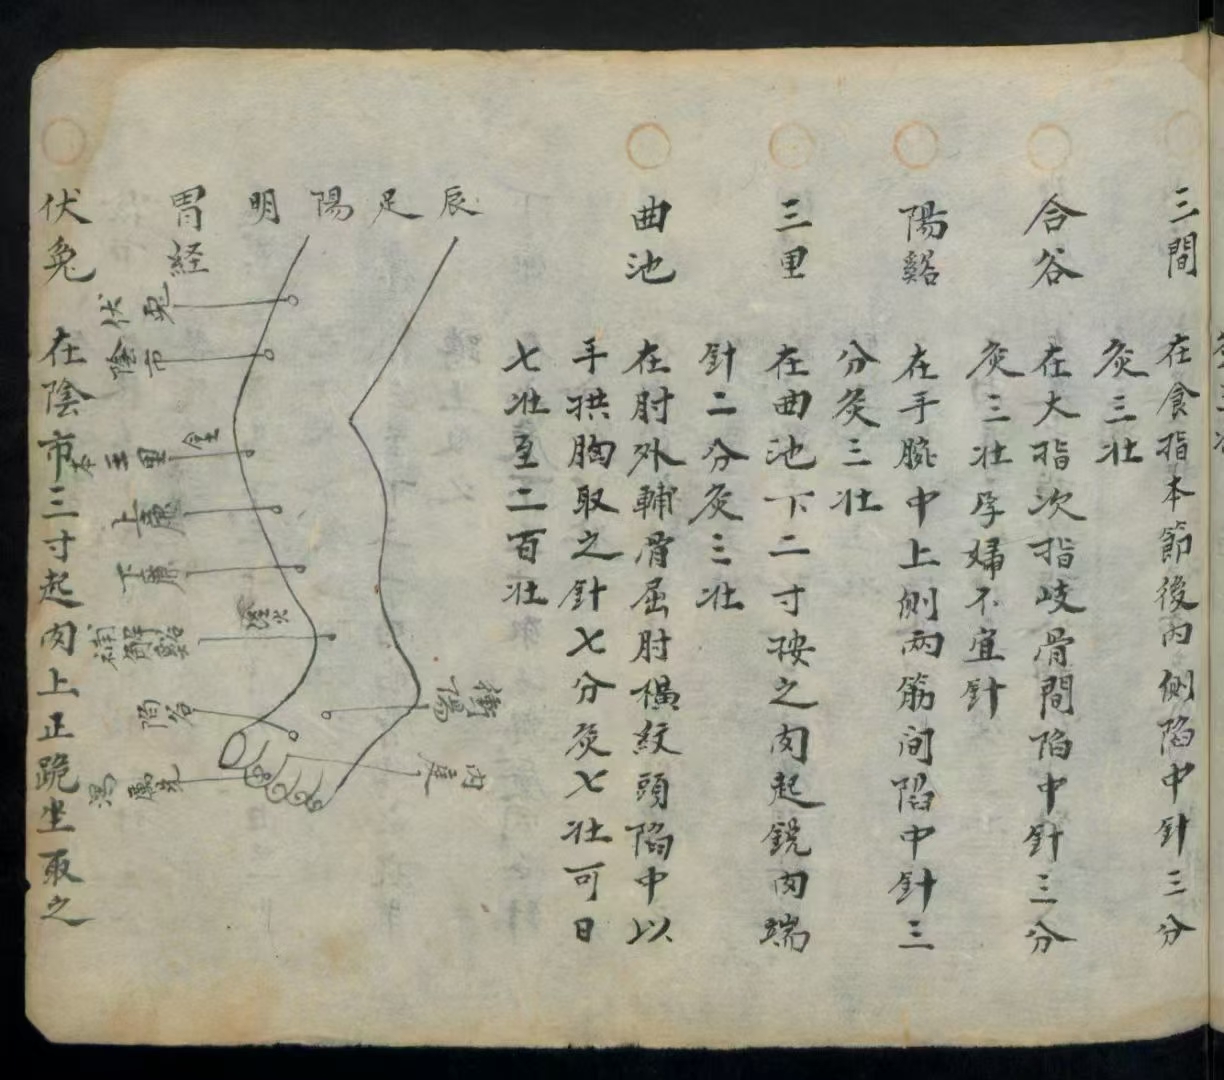 三間
在食指本節後内侧陷中針三分
灸三壮
合谷
在大指次指岐骨間陷中針三分
灸三壮孕婦不宜針
陽谿
在手腕中上侧两筋间陷中針三
分灸三壮
三里
在曲池下二寸按之肉起鋭肉端
針二分灸三壮
曲池
在肘外輔骨屈肘横紋頭陷中以
手拱胸取之針七分灸七壮可日
七壮至二百壮
辰足陽明
胃経
伏兎
陰市
三里
土
上廉
下廉
解谿
経火
衝陽
陷谷
内庭
厲兌
伏兎
在陰市三寸起肉上正跪坐取之